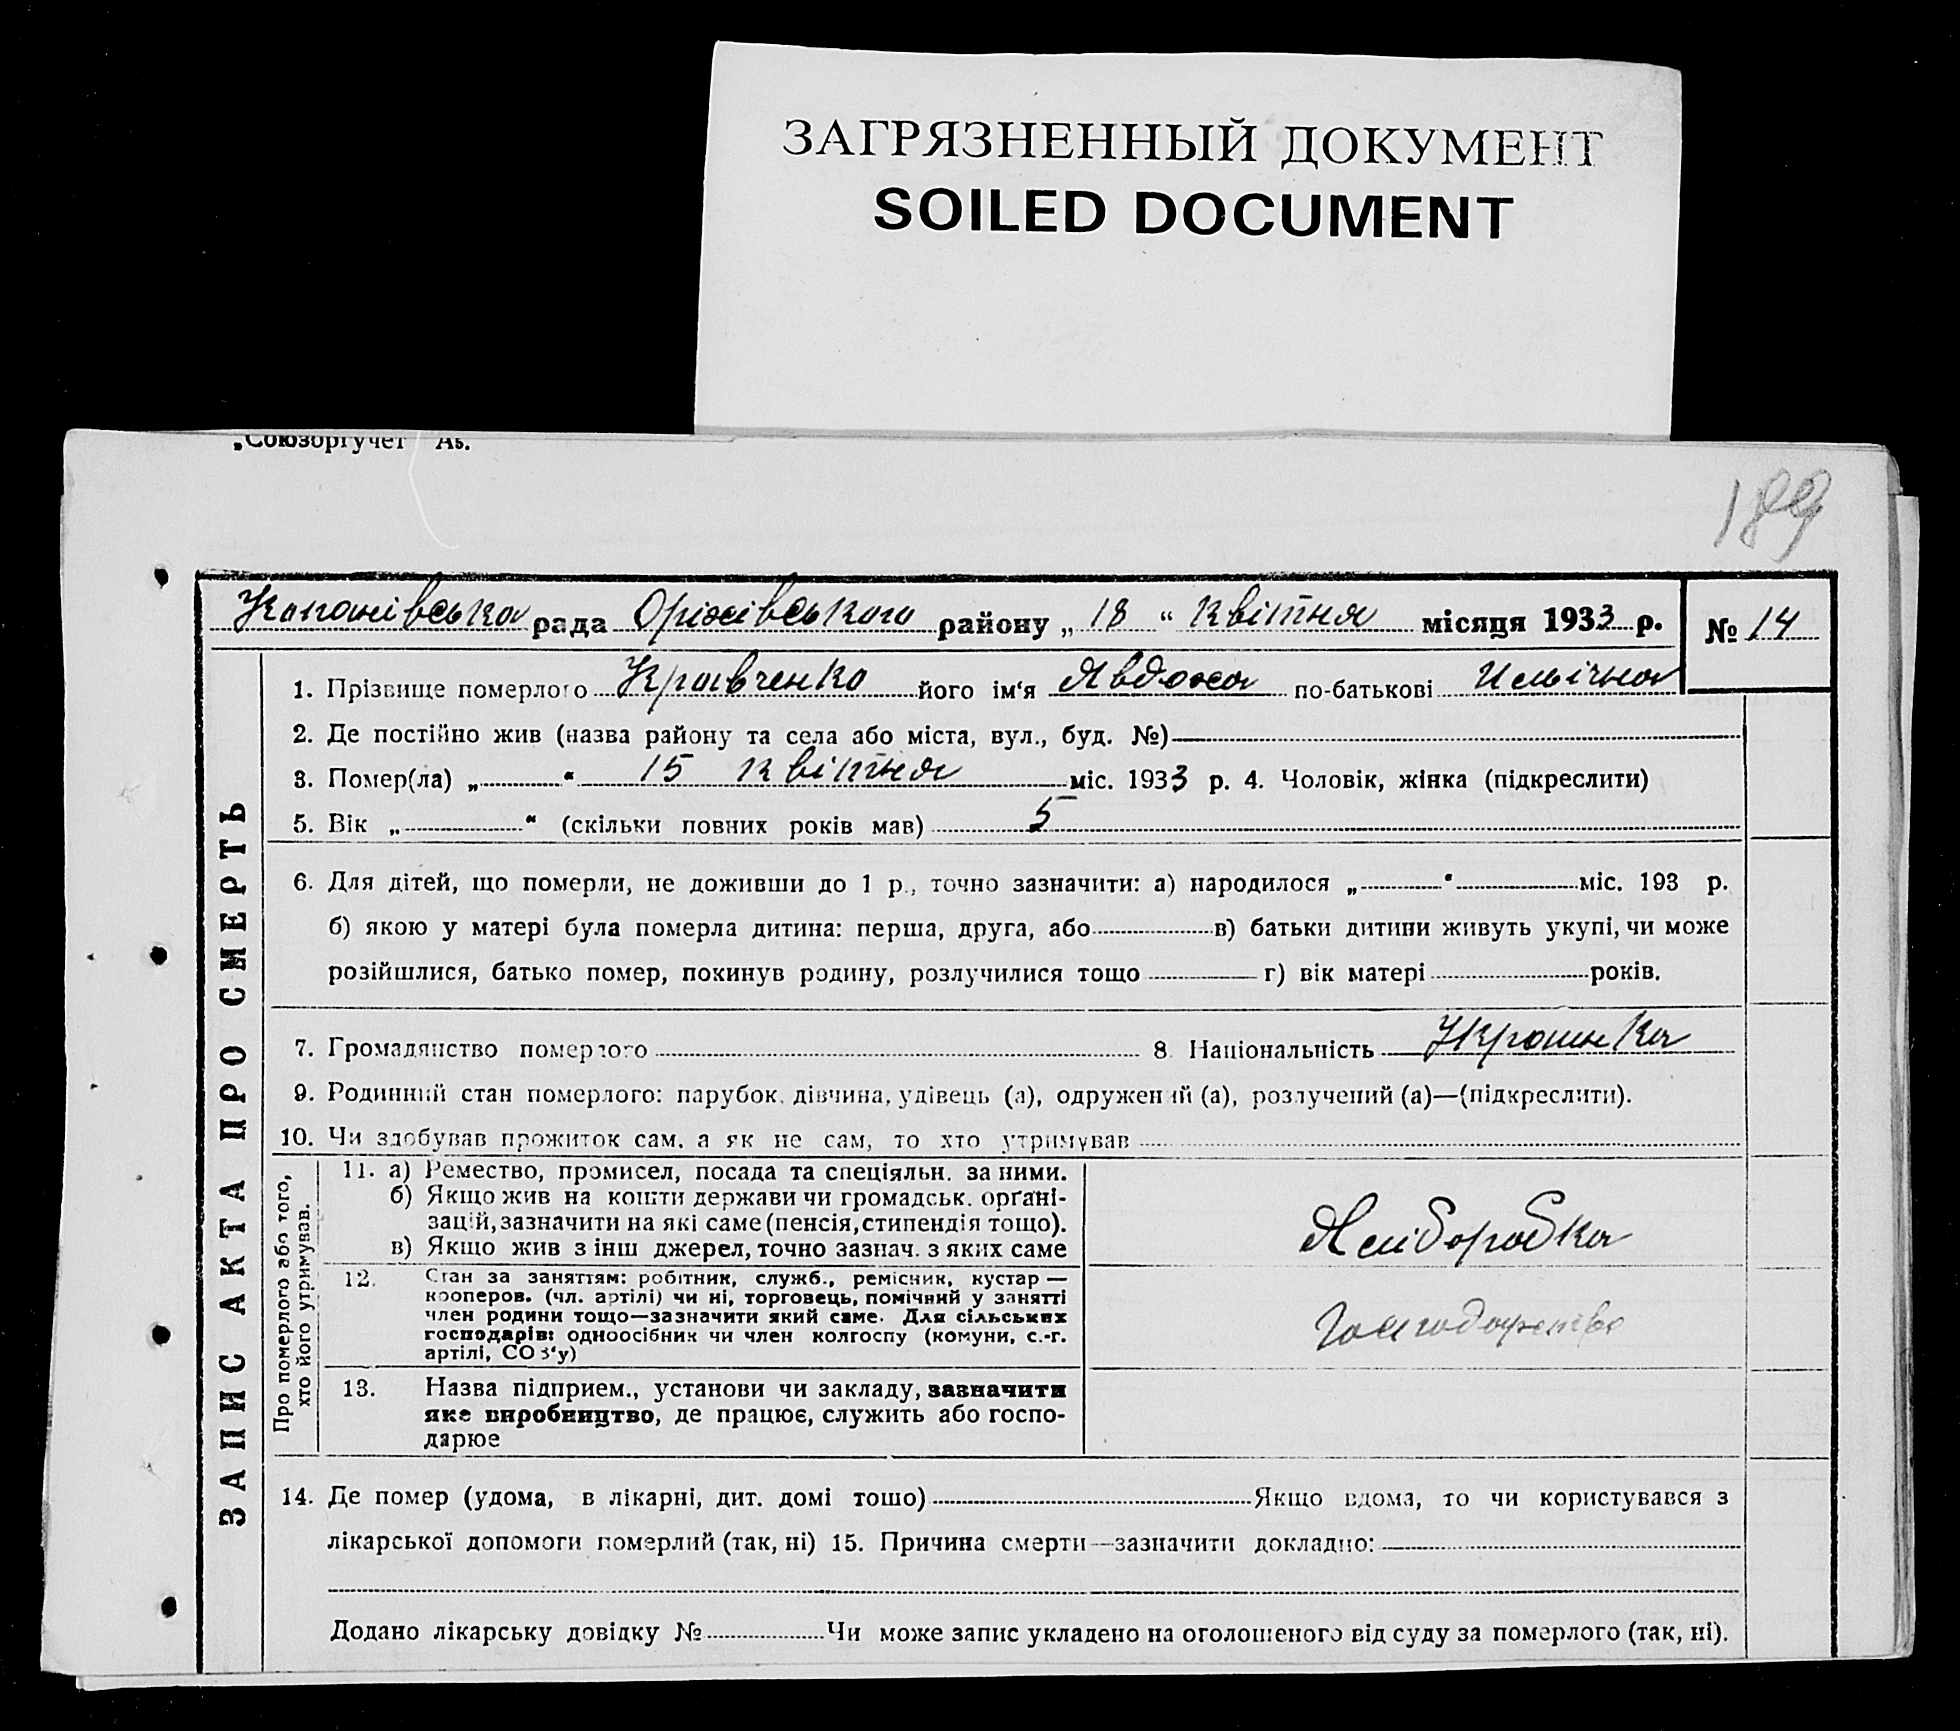 ЗАГРЯЗНЕННЫЙ ДОКУМЕНТ
SOILED DOCUMENT
„Союзоргучет"
189
Копанівська рада Оріхівського району „18" квітня місяця 1933 р. № 14
1. Прізвище померлого Кравченко його ім'я Явдоха по-батькові
2. Де постійно жив (назва району та села або міста, вул., буд. №)
3. Помер(ла) „ " 15 квітня міс. 1933 р. 4. Чоловік, жінка (підкреслити)
5. Вік „ " (скільки повних років мав) 5
6. Для дітей, що померли, не доживши до 1 р., точно зазначити: а) народилося „ " міс. 193 р.
б) якою у матері була померла дитина: перша, друга, або в) батьки дитини живуть укупі, чи може
розійшлися, батько помер, покинув родину, розлучилися тощо г) вік матері років.
7. Громадянство померлого 8. Національність Украинка
9. Родинний стан померлого: парубок, дівчина, удівець (а), одружений (а), розлучений (а)—(підкреслити).
10. Чи здобував прожиток сам, а як не сам, то хто утримував
ЗАПИС АКТА ПРО СМЕРТЬ
Про померлого або того,
хто його утримував.
11. а) Ремество, промисел, посада та спеціяльн. за ними.
б) Якщо жив на кошти держави чи громадськ. орґані-
зацій, зазначити на які саме (пенсія, стипендія тощо).
в) Якщо жив з інш джерел, точно зазнач. з яких саме
12. Стан за заняттям: робітник, служб., ремісник, кустар —
кооперов. (чл. артілі) чи ні, торговець, помічний у занятті
член родини тощо—зазначити який саме. Для сільських
господарів: одноосібник чи член колгоспу (комуни, с.-г.
артілі, СОЗ'у)
13. Назва підприєм., установи чи закладу, зазначити
яке виробництво, де працює, служить або госпо-
дарює
14. Де помер (удома, в лікарні, дит. домі тощо) Якщо вдома, то чи користувався з
лікарської допомоги померлий (так, ні) 15. Причина смерти—зазначити докладно:
Додано лікарську довідку № Чи може запис укладено на оголошеного від суду за померлого (так, ні).